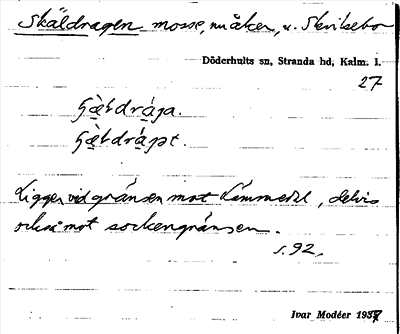 Skäldragen mosse, nu åker, v. Skrikebo
Döderhults sn, Stranda hd, Kalm. l.
27
Ligger vid gränsen mot Lämmedal, delvis
också mot sockengränsen.
s. 92.
Ivar Modéer 1937